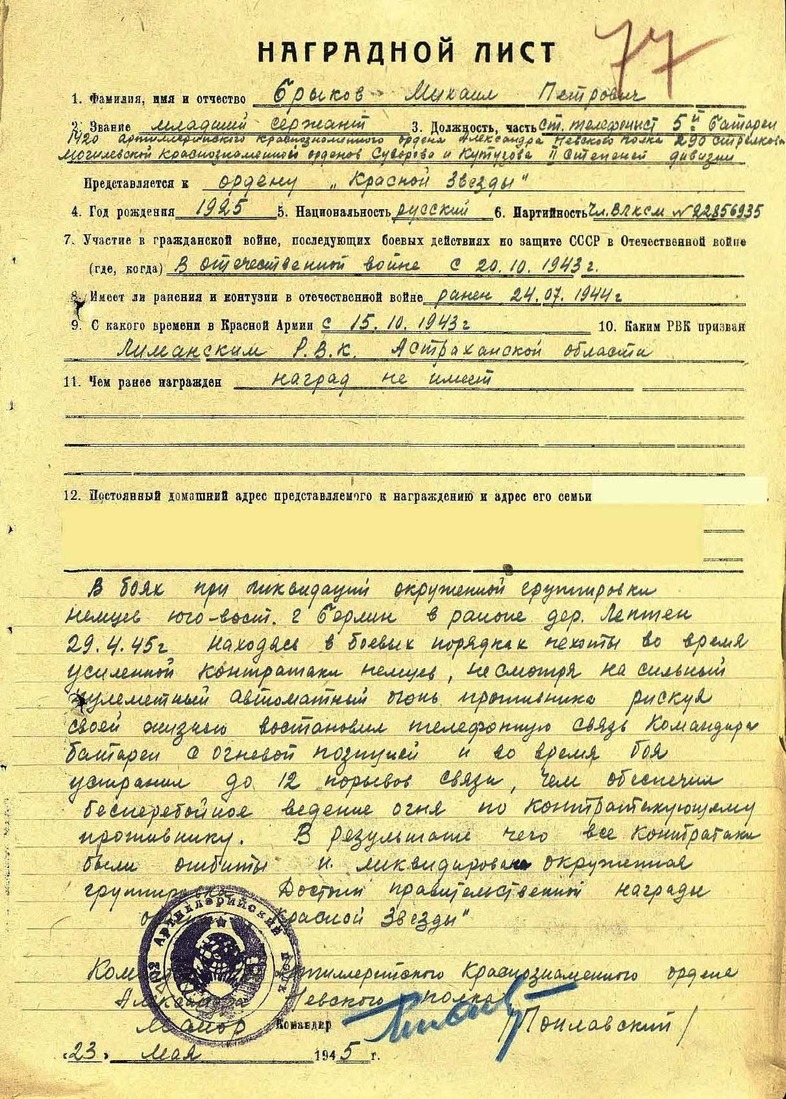 77
НАГРАДНОЙ ЛИСТ
1. Фамилия, имя и отчество Брыков Михаил Петрович
2. Звание младший сержант 3. Должность, часть ст. телефонист 5й батареи
1420 артиллерийского краснознаменного ордена Александра Невского полка 290 стрелковой
Могилевской Краснознаменной орденов Суворова и Кутузова II степеней дивизии
Представляется к ордену „Красной Звезды"
4. Год рождения 1925 5. Национальность русский 6. Партийность Чл. ВЛКСМ №22856935
7. Участие в гражданской войне, последующих боевых действиях по защите СССР в Отечественной войне
(где, когда) В отечественной войне с 20.10.1943г.
8. Имеет ли ранения и контузии в отечественной войне ранен 24.07.1944г
9. С какого времени в Красной Армии с 15.10.1943г 10. Каким РВК призван
Лиманским Р.В.К. Астраханской области
11. Чем ранее награжден наград не имеет
12. Постоянный домашний адрес представляемого к награждению и адрес его семьи
В боях при ликвидаций окруженной группировки
немцев юго-вост. г Берлин в районе дер. Лептен
29.4.45г Находясь в боевых порядках пехоты во время
усиленной контратаки немцев, не смотря на сильный
пулеметный автоматный огонь противника рискуя
своей жизнью востановил телефонную связь Командира
батареи с огневой позицией и во время боя
устранил до 12 порывов связи, чем обеспечил
бесперебойное ведение огня по контратакующему
противнику. В результате чего все контратаки
были отбиты и ликвидирована окруженная
группировка. Достоин правительственной награды
Красной Звезды"
Артиллерийского Краснознаменного ордена
Александра Невского полка
Майор Командир /Поплавский/
„23" Мая 1945 г.
Артиллерийский